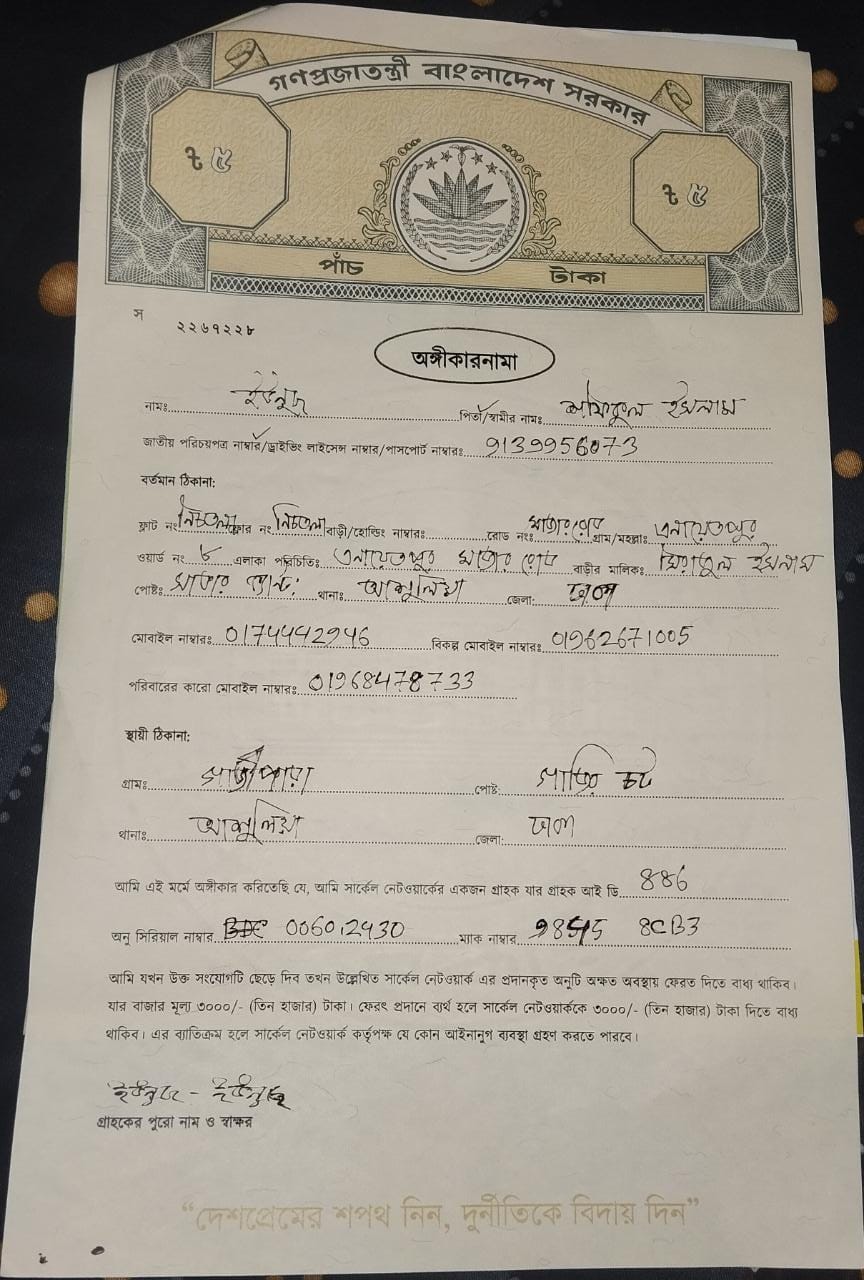 গণপ্রজাতন্ত্রী বাংলাদেশ সরকার
৳ ৫
৳ ৫
পাঁচ টাকা
স
২২৬৭২২৮
অঙ্গীকারনামা
নামঃ ইউনুছ পিতা/স্বামীর নামঃ শফিকুল ইসলাম
জাতীয় পরিচয়পত্র নাম্বার/ড্রাইভিং লাইসেন্স নাম্বার/পাসপোর্ট নাম্বারঃ 9139956073
বর্তমান ঠিকানা:
ফ্লাট নং নিচতলা ফ্লোর নং নিচতলা বাড়ী/হোল্ডিং নাম্বারঃ রোড নংঃ মাজার রোড গ্রাম/মহল্লাঃ এনায়েতপুর
ওয়ার্ড নং ৮ এলাকা পরিচিতিঃ এনায়েতপুর মাজার রোড বাড়ীর মালিকঃ সিরাজুল ইসলাম
পোষ্টঃ থানাঃ আশুলিয়া জেলা: ঢাকা
মোবাইল নাম্বারঃ 0174442946 বিকল্প মোবাইল নাম্বারঃ 01962671005
পরিবারের কারো মোবাইল নাম্বারঃ 01968478733
স্থায়ী ঠিকানা:
গ্রামঃ পোষ্ট:
থানাঃ আশুলিয়া জেলা: ঢাকা
আমি এই মর্মে অঙ্গীকার করিতেছি যে, আমি সার্কেল নেটওয়ার্কের একজন গ্রাহক যার গ্রাহক আই ডি 886
অনু সিরিয়াল নাম্বার 006012430 ম্যাক নাম্বার 9845 8CB3
আমি যখন উক্ত সংযোগটি ছেড়ে দিব তখন উল্লেখিত সার্কেল নেটওয়ার্ক এর প্রদানকৃত অনুটি অক্ষত অবস্থায় ফেরত দিতে বাধ্য থাকিব।
যার বাজার মূল্য ৩০০০/- (তিন হাজার) টাকা। ফেরৎ প্রদানে ব্যর্থ হলে সার্কেল নেটওয়ার্ককে ৩০০০/- (তিন হাজার) টাকা দিতে বাধ্য
থাকিব। এর ব্যাতিক্রম হলে সার্কেল নেটওয়ার্ক কর্তৃপক্ষ যে কোন আইনানুগ ব্যবস্থা গ্রহণ করতে পারবে।
ইউনুছ - ইউনুছ
গ্রাহকের পুরো নাম ও স্বাক্ষর
“দেশপ্রেমের শপথ নিন, দুর্নীতিকে বিদায় দিন”